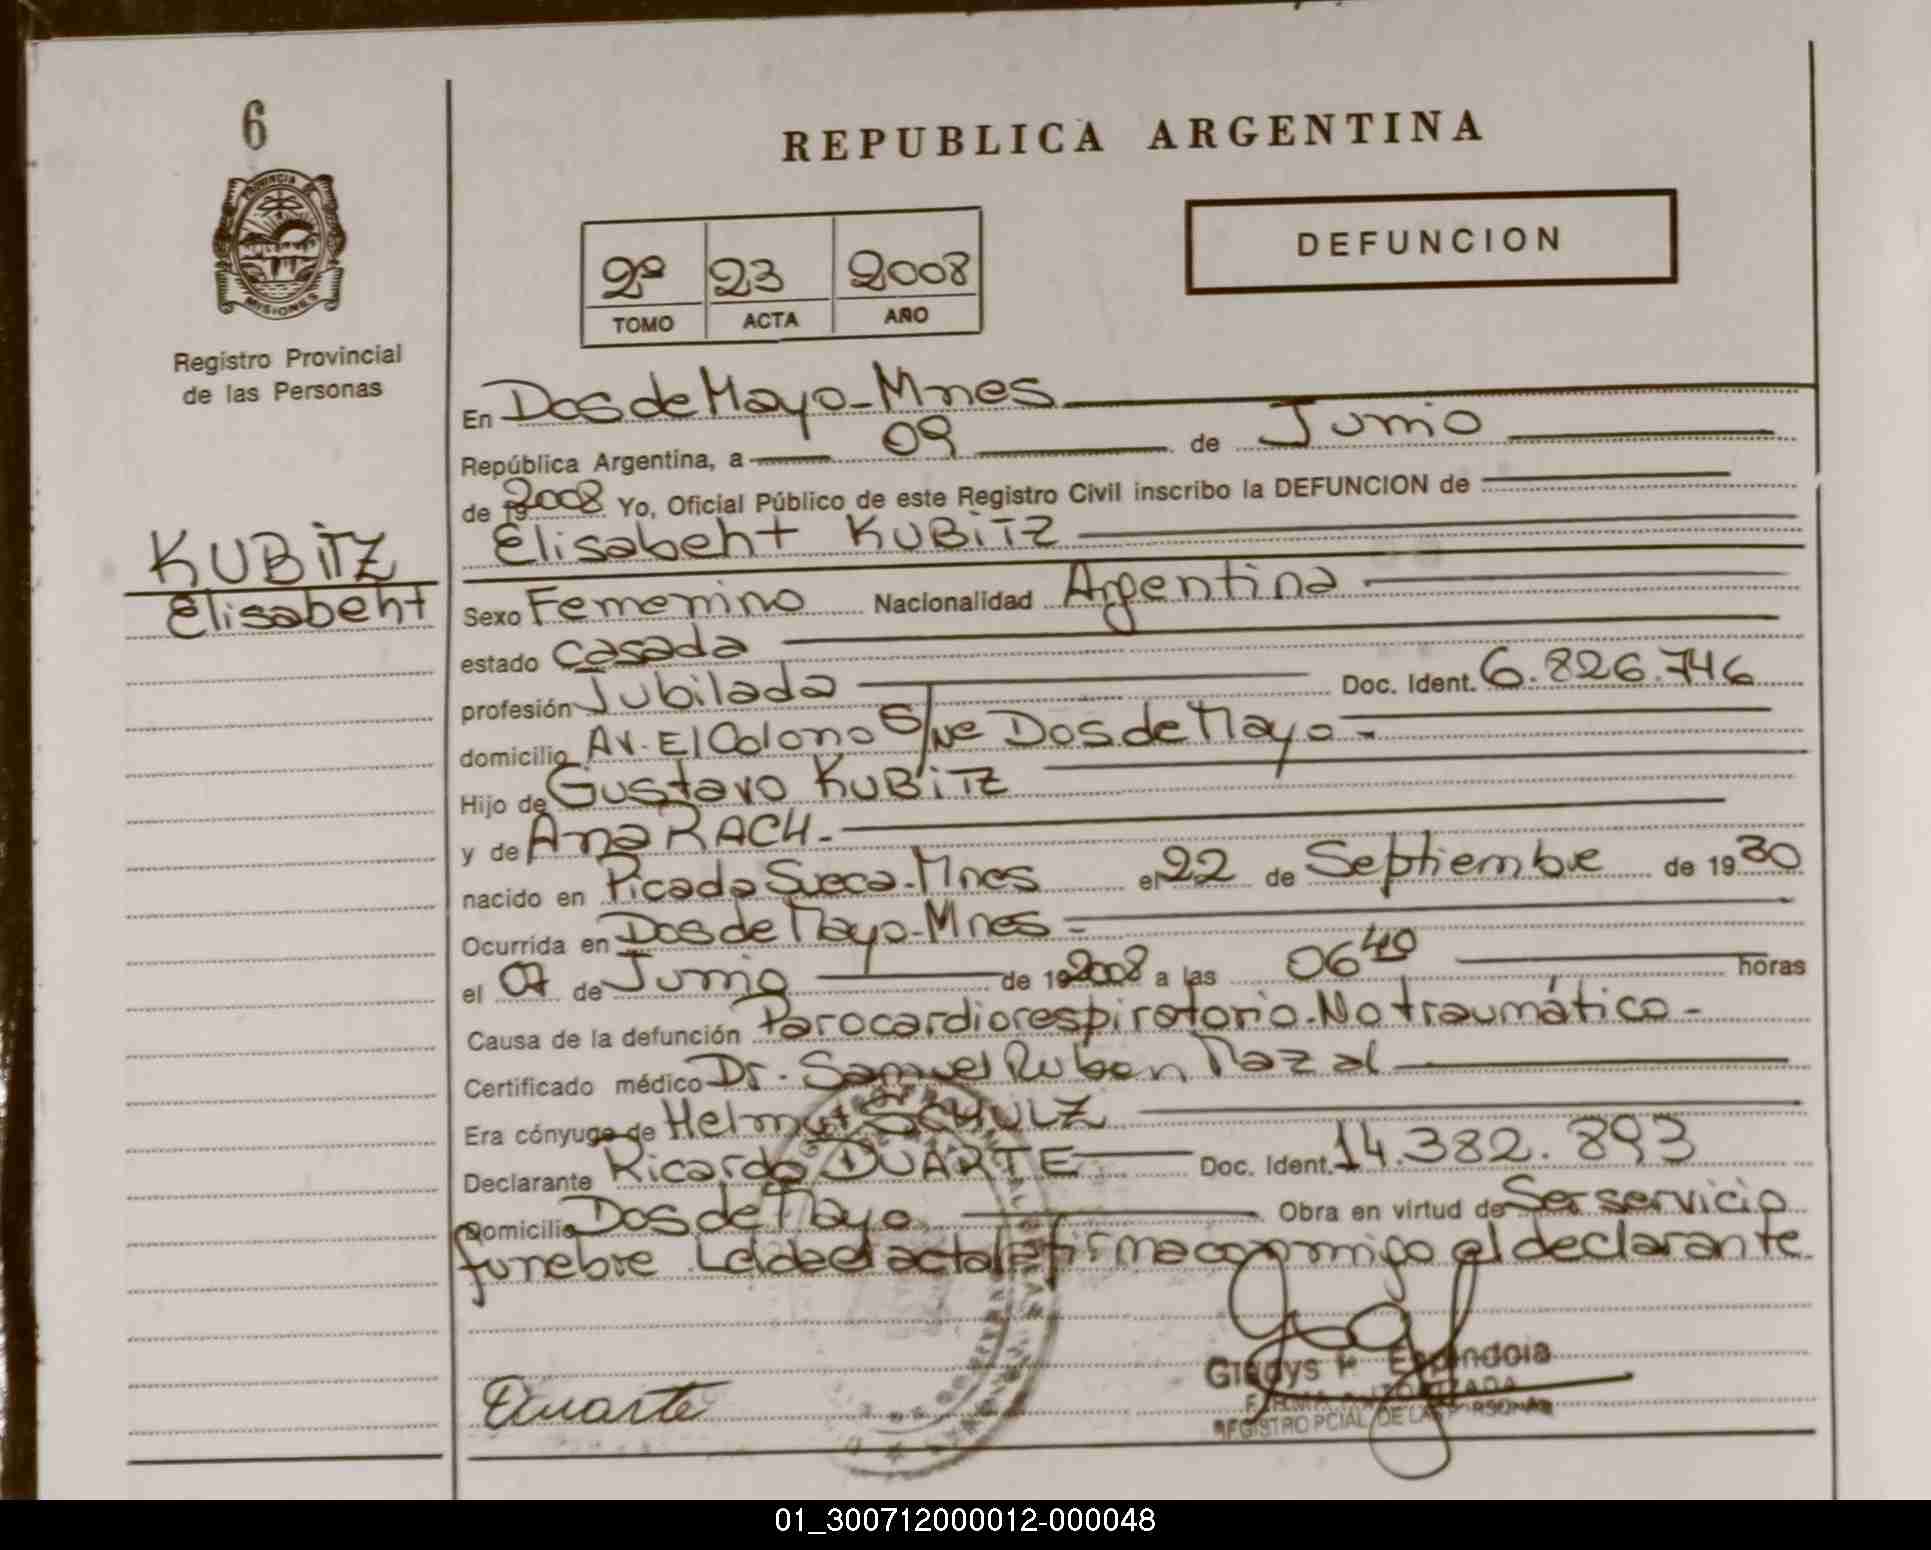 6
PROVINCIA DE
MISIONES
Registro Provincial
de las Personas
KUBITZ
Elisabeht
REPUBLICA ARGENTINA
2º 23 2008
TOMO ACTA AÑO
DEFUNCION
En Dos de Mayo-Mnes
República Argentina, a 09 de Junio
de 2008 Yo, Oficial Público de este Registro Civil inscribo la DEFUNCION de
Elisabeht KUBITZ
Sexo Femenino Nacionalidad Argentina
estado casada
profesión Jubilada Doc. Ident. 6.826.746
domicilio Av. El Colono S/Nº Dos de Mayo-
Hijo de Gustavo KUBITZ
y de Ana RACH.-
nacido en Picada Sueca-Mnes el 22 de Septiembre de 1930
Ocurrida en Dos de Mayo-Mnes-
el 07 de Junio de 2008 a las 06 40 horas
Causa de la defunción Parocardiorespiratorio. No traumático-
Certificado médico Dr. Samuel Ruben Mazal
Era cónyuge de Helmut SCHULZ
Declarante Ricardo DUARTE Doc. Ident. 14.382.893
Domicilio Dos de Mayo Obra en virtud de Ser servicio
funebre Leida el acta la firma conmigo el declarante.
Duarte
Gladys Espindola
REGISTRO PCIAL DE LAS PERSONAS
01_300712000012-000048